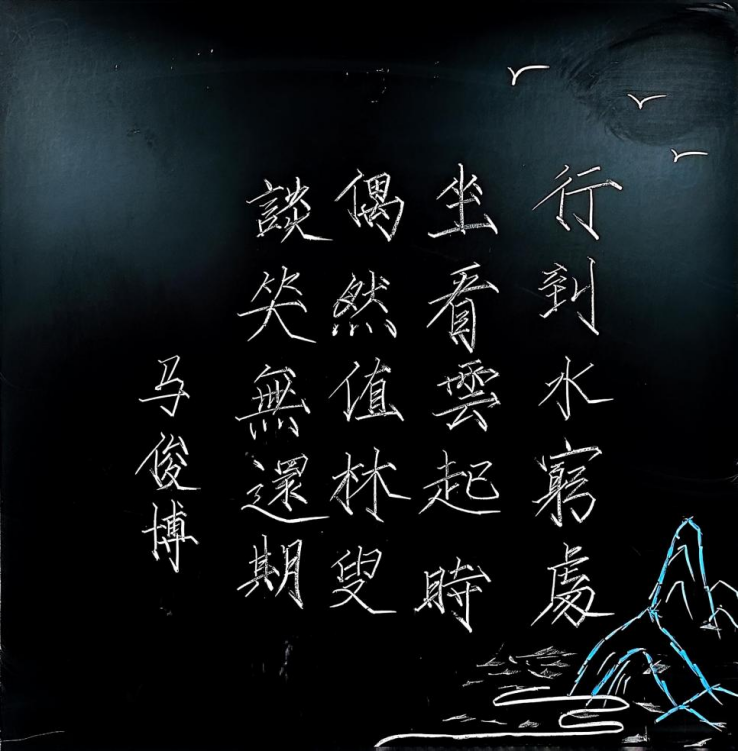 行到水窮處
坐看雲起時
偶然值林叟
談笑無還期
马俊博